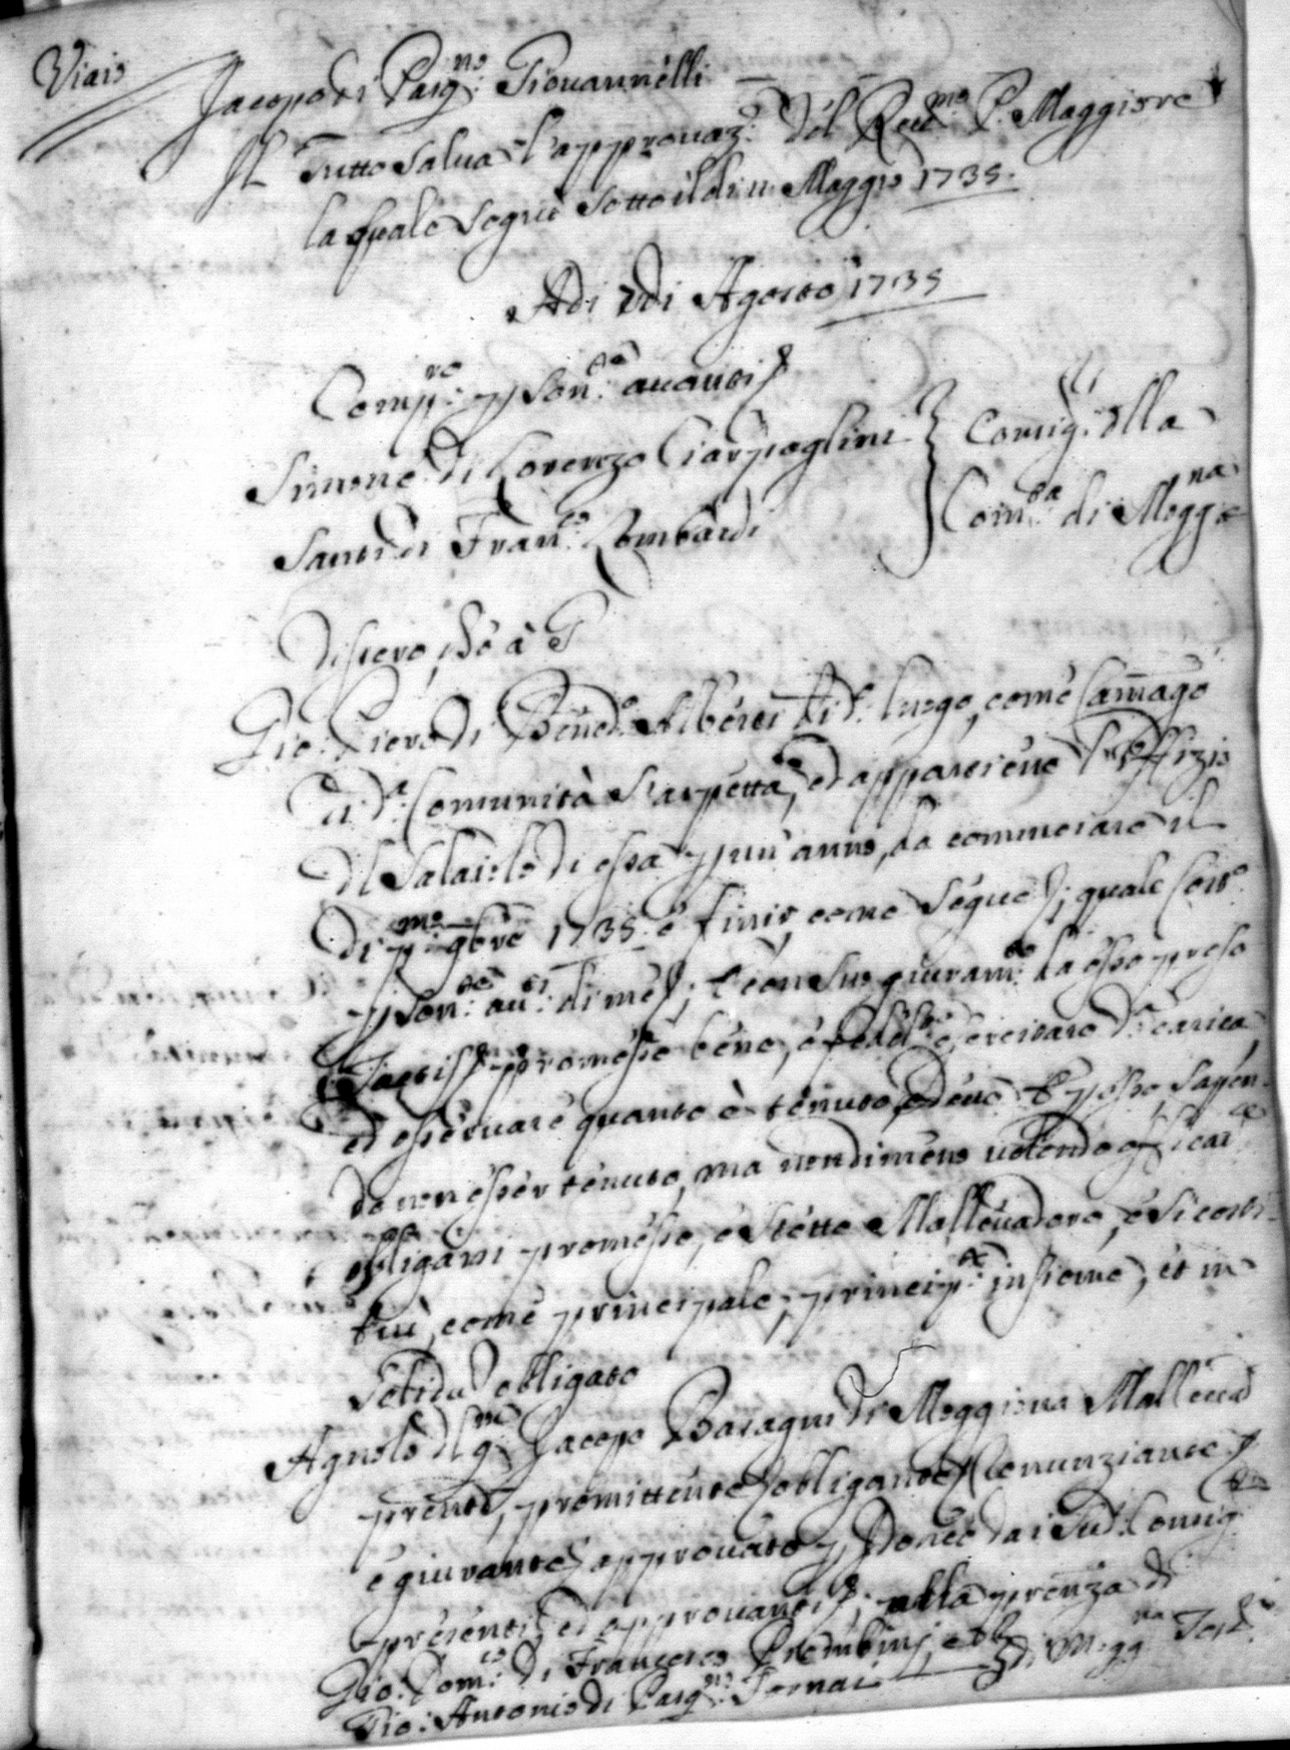 Viaio
Jacopo di Pasq:no Giovannelli
Il Tutto Salva l'approvaz:e del Rev:mo P. Maggiore
la quale Seguì Sotto il dì 11 Maggio 1735.
Adi 2 di Agosto 1735
Comp:re p Son:te avanti
Simone di Lorenzo Ciarpaglini } Consig:ri dlla
Santi di Fran:co Lombardi } Com:tà di Mogg:na
Gio: Piero di Bened:o Alberti di d:o luogo, come Camarl:go
di d:a Comunità S'aspetta, ed appartiene l'Uffizio
dl Salaiolo di essa p un' anno, da cominciare il
dì p:mo 9bre 1735. e finir, come Segue; quale Cost:o
p Son:te av:ti di me; e con Suo giuram:to da esso preso
promesse bene, e fedel:te esercitare d:a carica,
ed osservare quanto è tenuto, e deve e p esso, Sapen-
do non esser tenuto, ma nondimeno volendo efficac:te
obligarsi promesse, e Stette Mallevadore, e Si costi-
tuì come principale, princip:te insieme, et in
Solidu obligato
Agnolo dl q:m Jacopo Baragni di Moggiona Mallevad
prente, promittente obligante Renunziante
e giurante approvato p Idoneo dai Sud:ti Consig:
presenti, ed approvanti; alla prenza di
Gio: Dom:co di Francesco
Gio: Antonio di Pasq:no di Mogg:na Test: